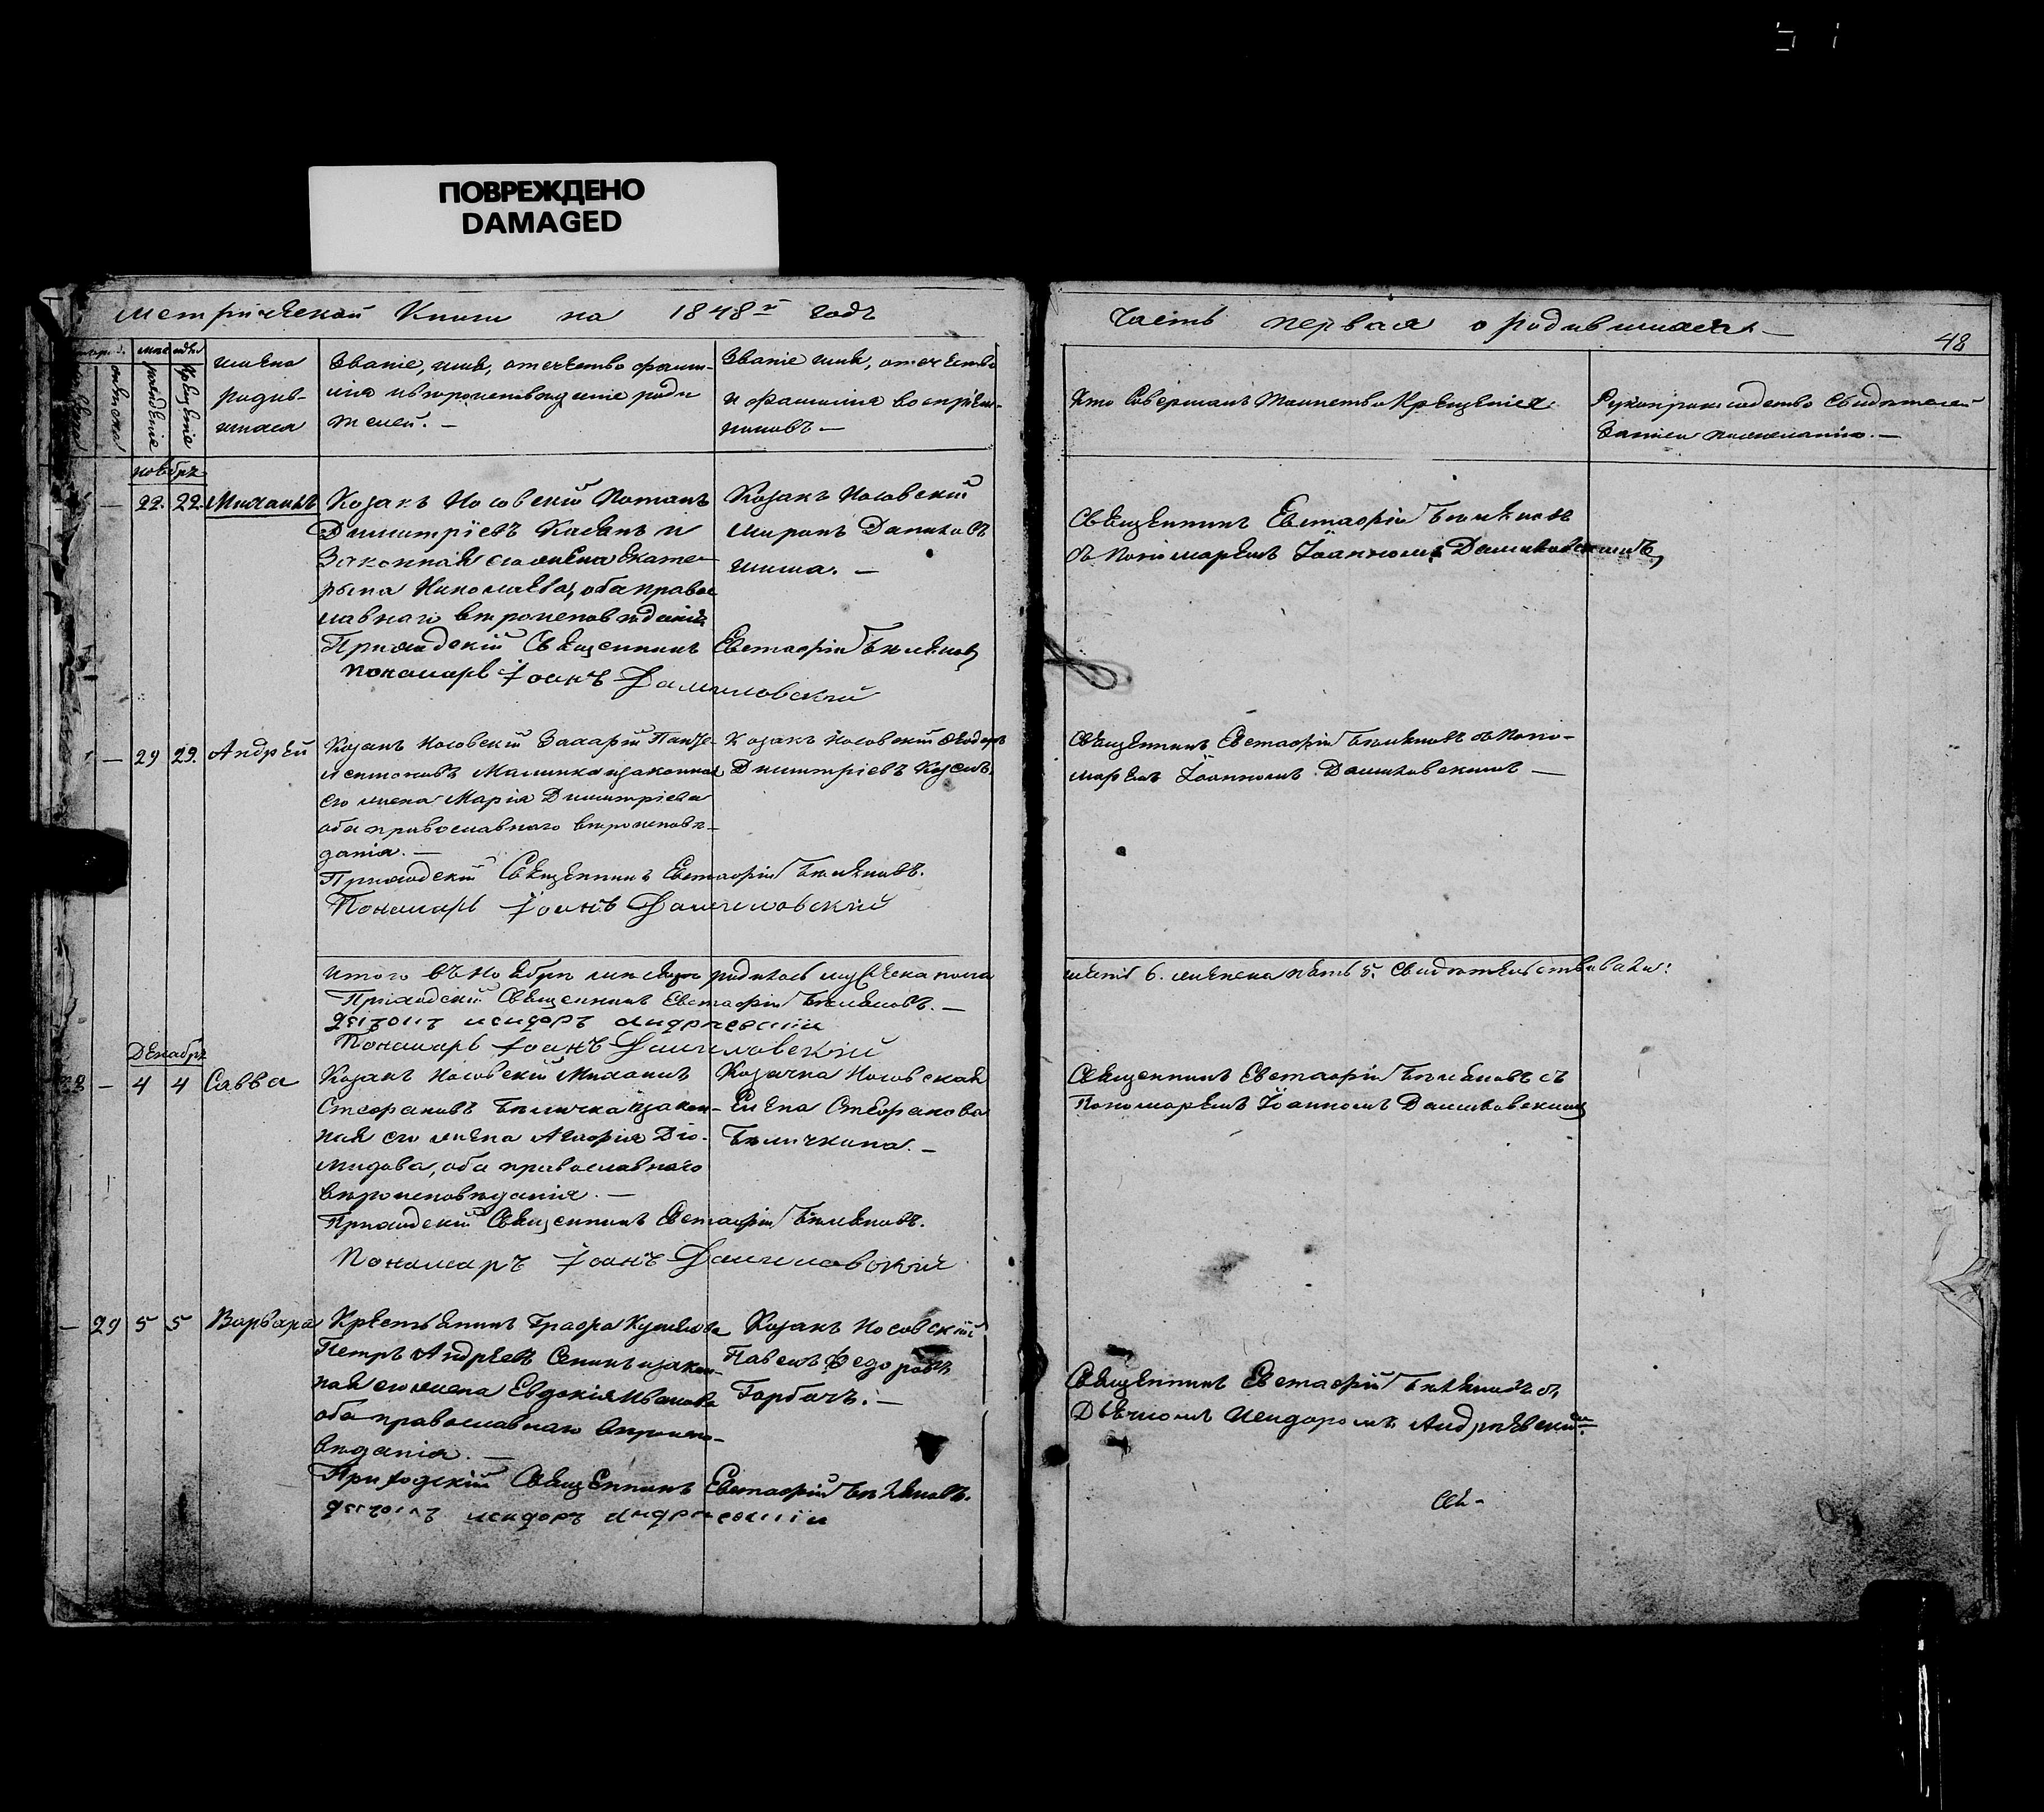 ПОВРЕЖДЕНО
DAMAGED
метрической Книги на 1848й годъ
Часть первая о родившихся. —
48
имена
родив-
шихся
Званіе, имя, отечество фами-
лія и вѣроисповѣданіе роди
телей. —
Званіе имя, отечество
и фамилія воспріем-
никовъ —
Кто Совершалъ таинство Крещенія
Рукоприкладство Свидѣтелей
записи по желанію. —
рожденіе
Крещеніе
ноябрь
— 22. 22. Михаилъ
Козакъ Носовскій Потапъ
Димитріевъ Касянъ и
Законная его жена Екате-
рына Николаева, оба право
славнаго вѣроисповѣданія
Приходскій Священникъ Евстафій Бѣляковъ
пономарь Іоанъ Данилювский
Козакъ Носовскій
Миронъ Даниловъ
Шиша. —
Священникъ Евстафій Бѣляковъ
съ Пономаремъ Іоанномъ Даниловскимъ
— 29 29. Андрей
Козакъ Носовскій Захарій Панте-
леимоновъ Малинка и законная
его жена Марія Димитріева
оба православнаго вѣроисповѣ-
данія. —
Приходскій Священникъ Евстафій Бѣляковъ.
Пономарь Іоанъ Даниловский
Козакъ Носовскій Ѳеодоръ
Димитріевъ Козелъ.
Священникъ Евстафій Бѣляковъ съ Поно-
маремъ Іоанномъ Даниловскимъ —
Итого въ Ноябрѣ мѣсяцѣ родилось мужеска пола
шесть 6. женска пять 5. Свидѣтельствовали:
Приходскій Священникъ Евстафій Бѣляковъ. —
дячокъ исидоръ андрѣевскій
Пономарь Іоанъ Даниловский
Декабрь
28 — 4 4 Савва
Козакъ Носовскій Михаилъ
Стефановъ Бѣличка и закон-
ная его жена Агафія Діо-
мидова, оба православнаго
вѣроисповѣданія. —
Приходскій Священникъ Евстафій Бѣляковъ.
Пономаръ Іоанъ Даниловский
Козачка Носовская
Елена Стефанова
Бѣличкина. —
Священникъ Евстафій Бѣляковъ съ
Пономаремъ Іоанномъ Даниловскимъ
— 29 5 5 Варвара
Крестьянинъ Графа Кушелева
Петръ Андреевъ Сеникъ и закон-
ная его жена Евдокія Иванова
оба православнаго вѣроиспо-
вѣданія. —
Приходскій Священникъ Евстафій Бѣляковъ.
дячокъ исидоръ андрѣевскій
Козакъ Носовскій
Павелъ Федоровъ
Горбачъ. —
Священникъ Евстафій Бѣляковъ съ
Дьячкомъ Исидоромъ Андрѣевскимъ.